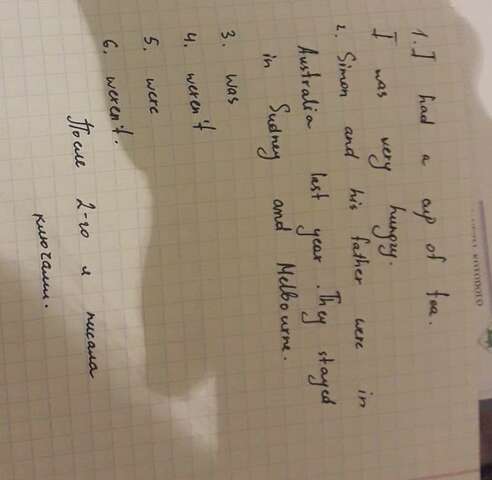 1. I had a cup of tea.
I was very hungry.
2. Simon and his father were in
Australia last year. They stayed
in Sudney and Melbourne.
3. was
4. weren't
5. were
6. weren't.
После 2-го я писала
ключами.